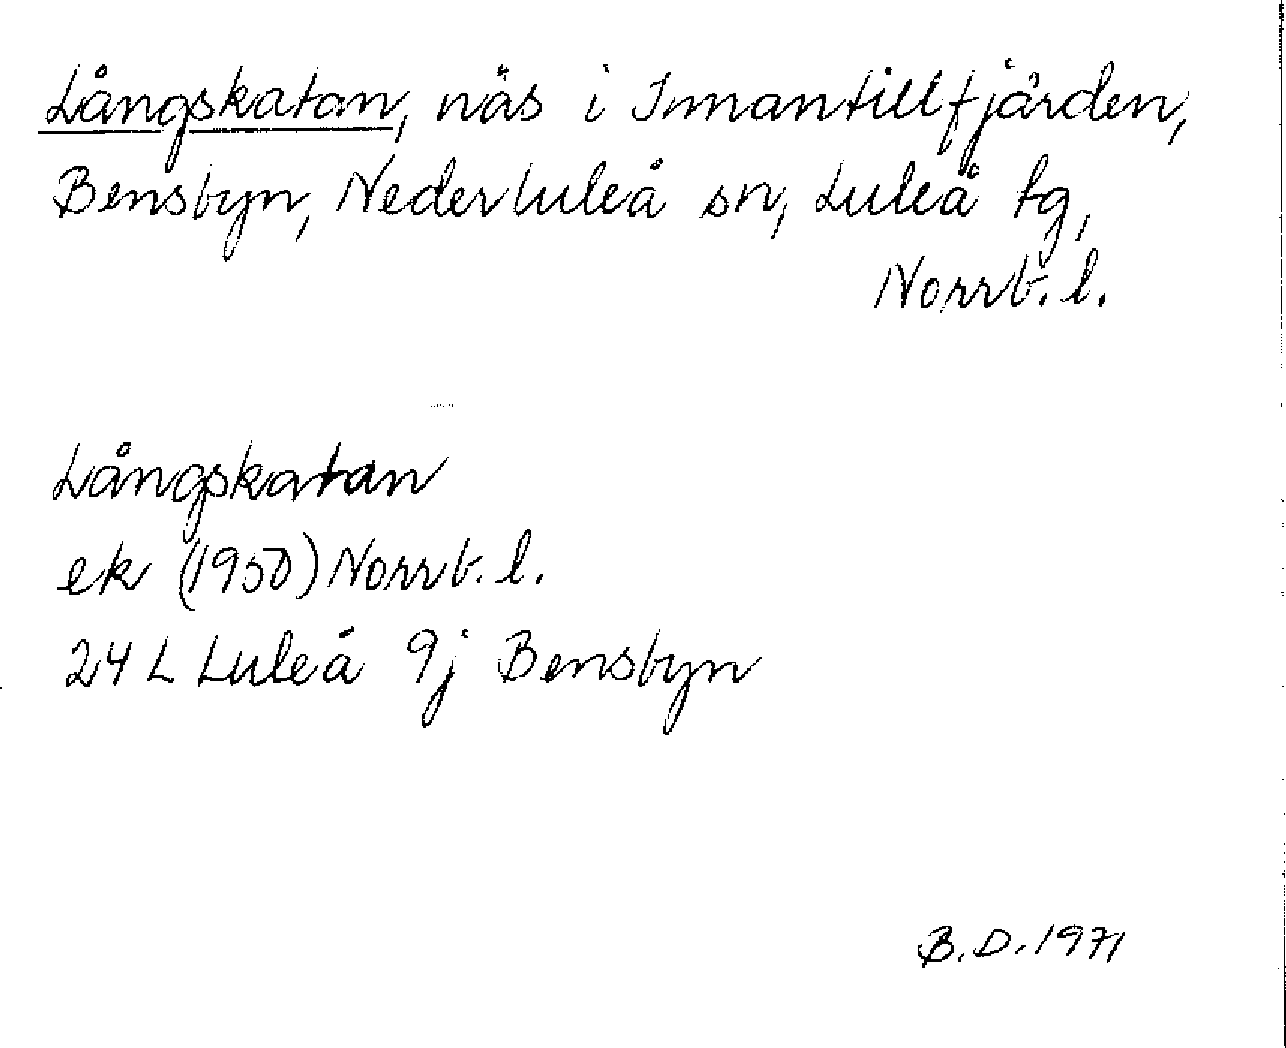 Långskatan, näs i Innantillfjärden,
Bensbyn, Nederluleå sn, Luleå tg,
Norrb. l.
Långskatan
ek (1950) Norrb. l.
24 L Luleå 9j Bensbyn
B.D. 1971